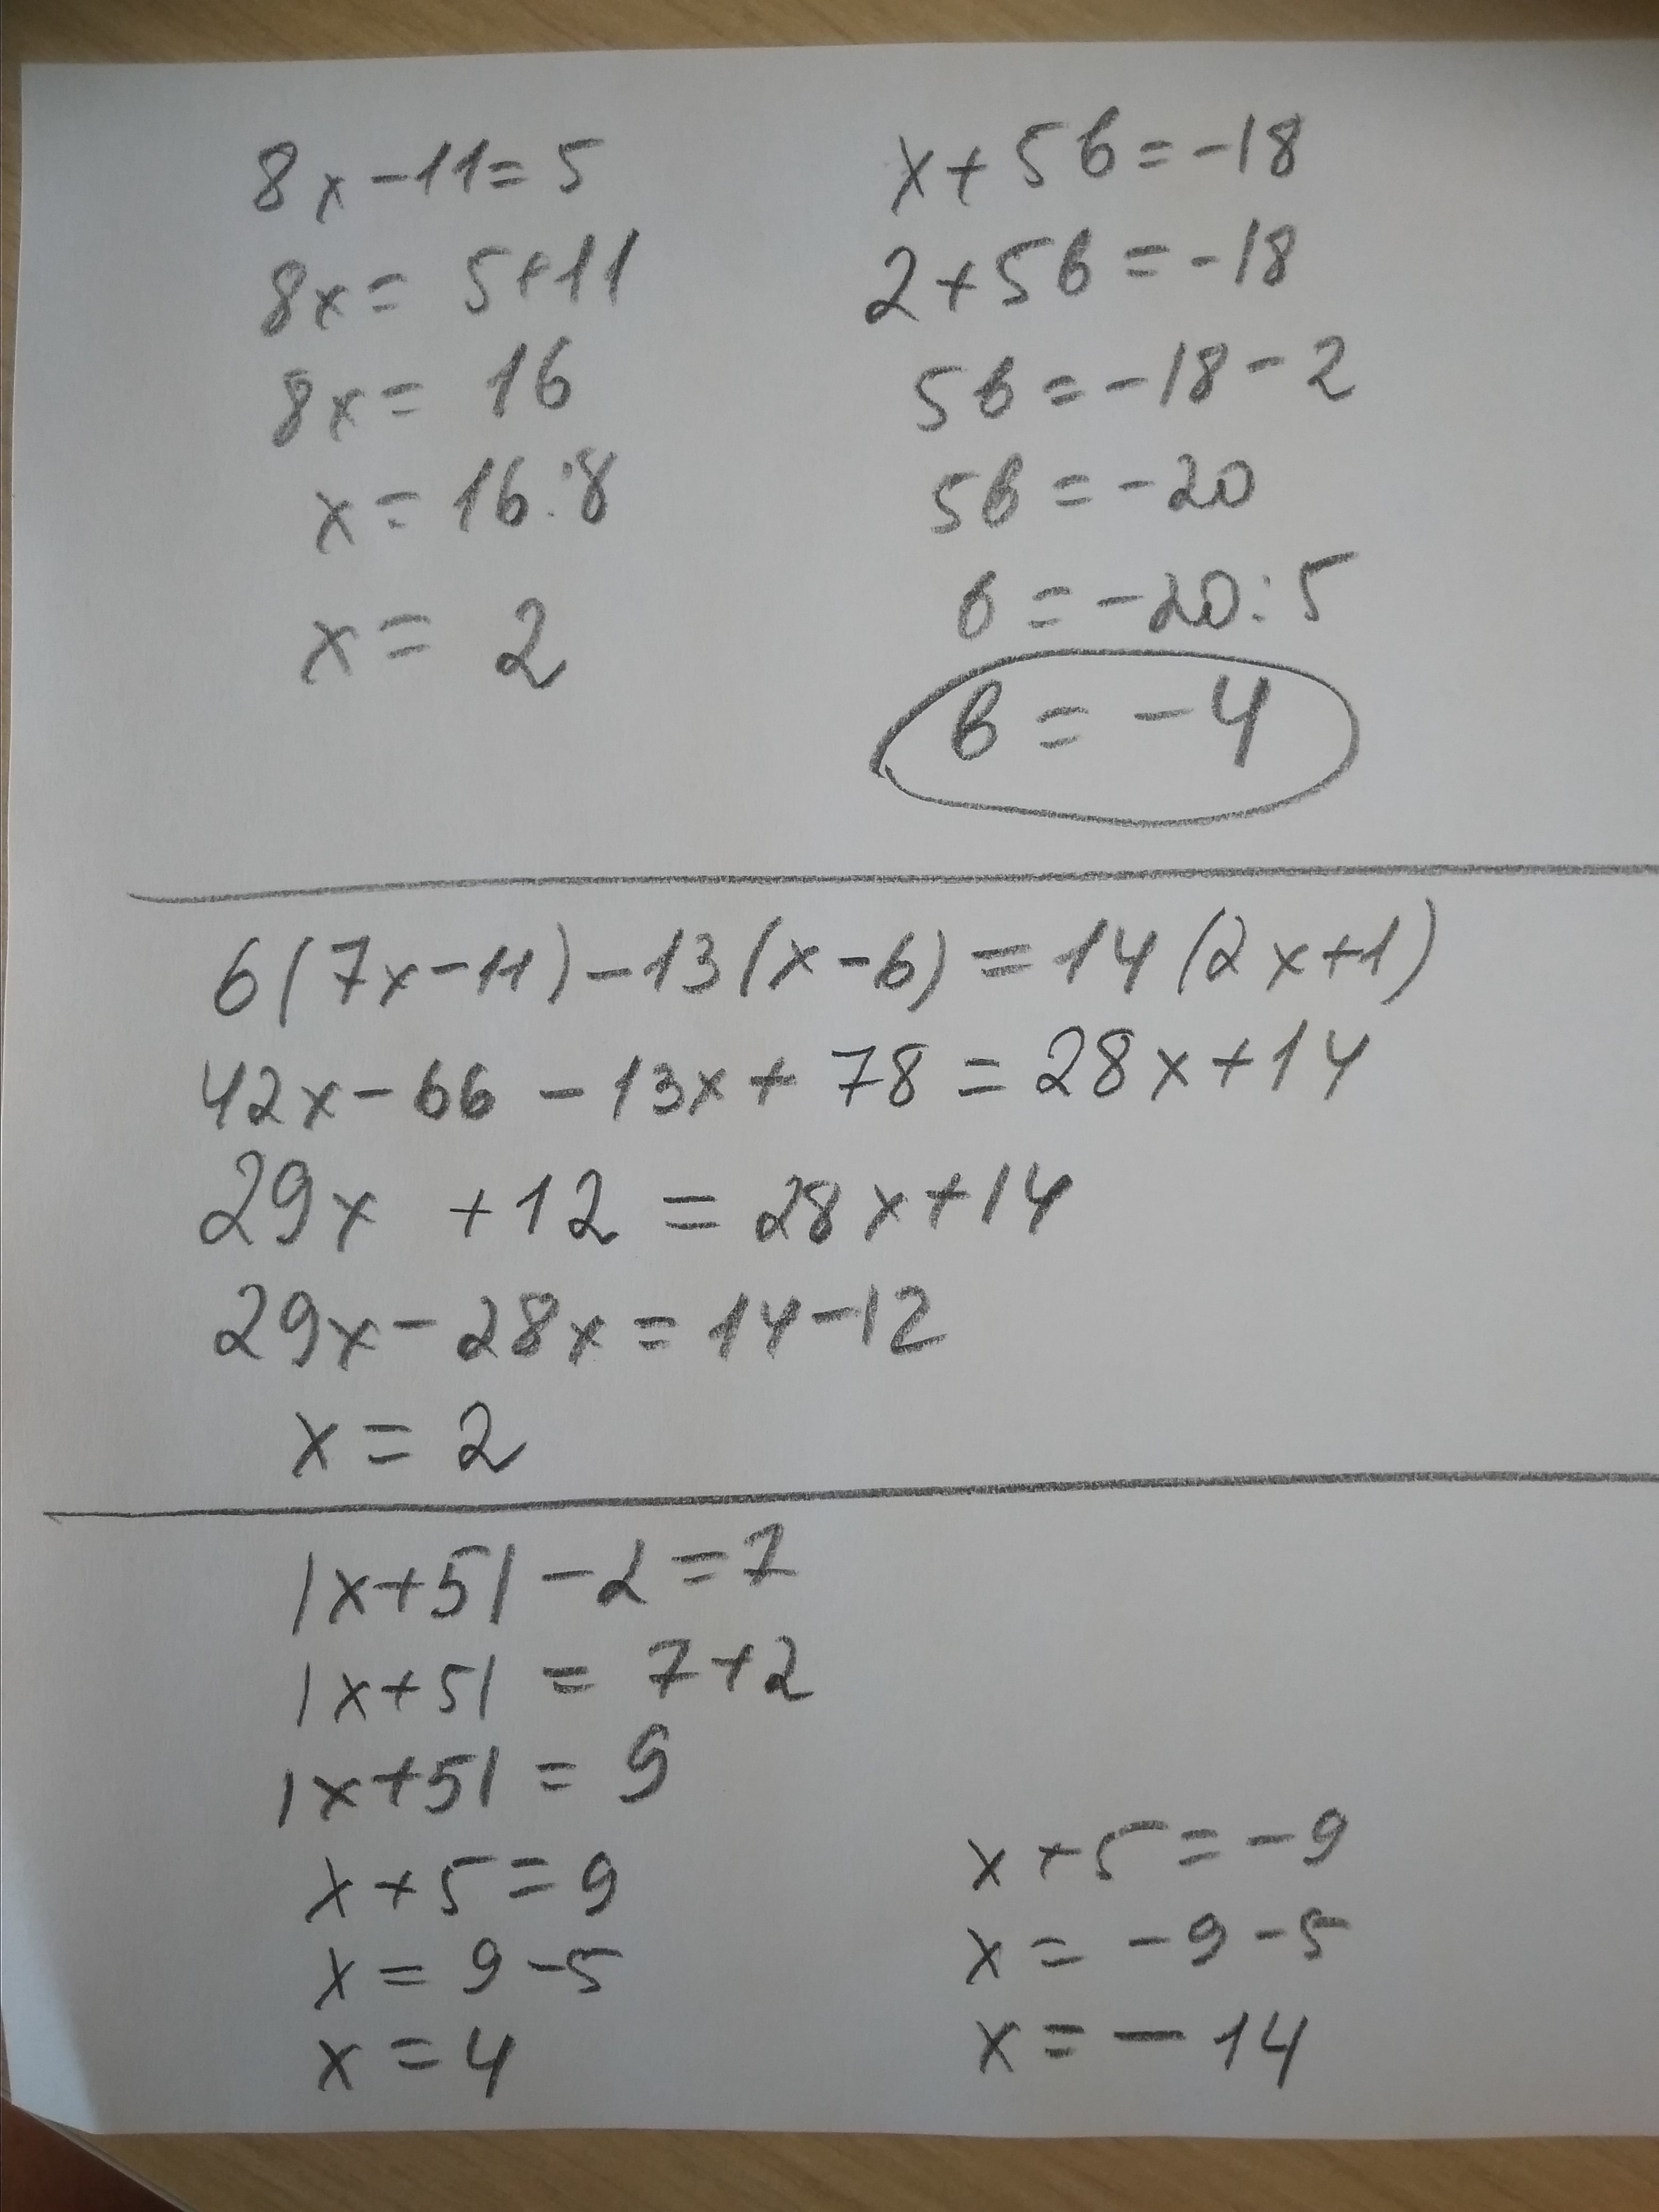 8x-11=5
8x= 5+11
8x= 16
x= 16:8
x= 2
x+5в=-18
2+5в=-18
5в=-18-2
5в=-20
в=-20:5
в=-4
6(7x-11)-13(x-6)=14(2x+1)
42x-66-13x+78=28x+14
29x +12=28x+14
29x-28x=14-12
x=2
|x+5|-2=7
|x+5|=7+2
|x+5|=9
x+5=9
x=9-5
x=4
x+5=-9
x=-9-5
x=-14